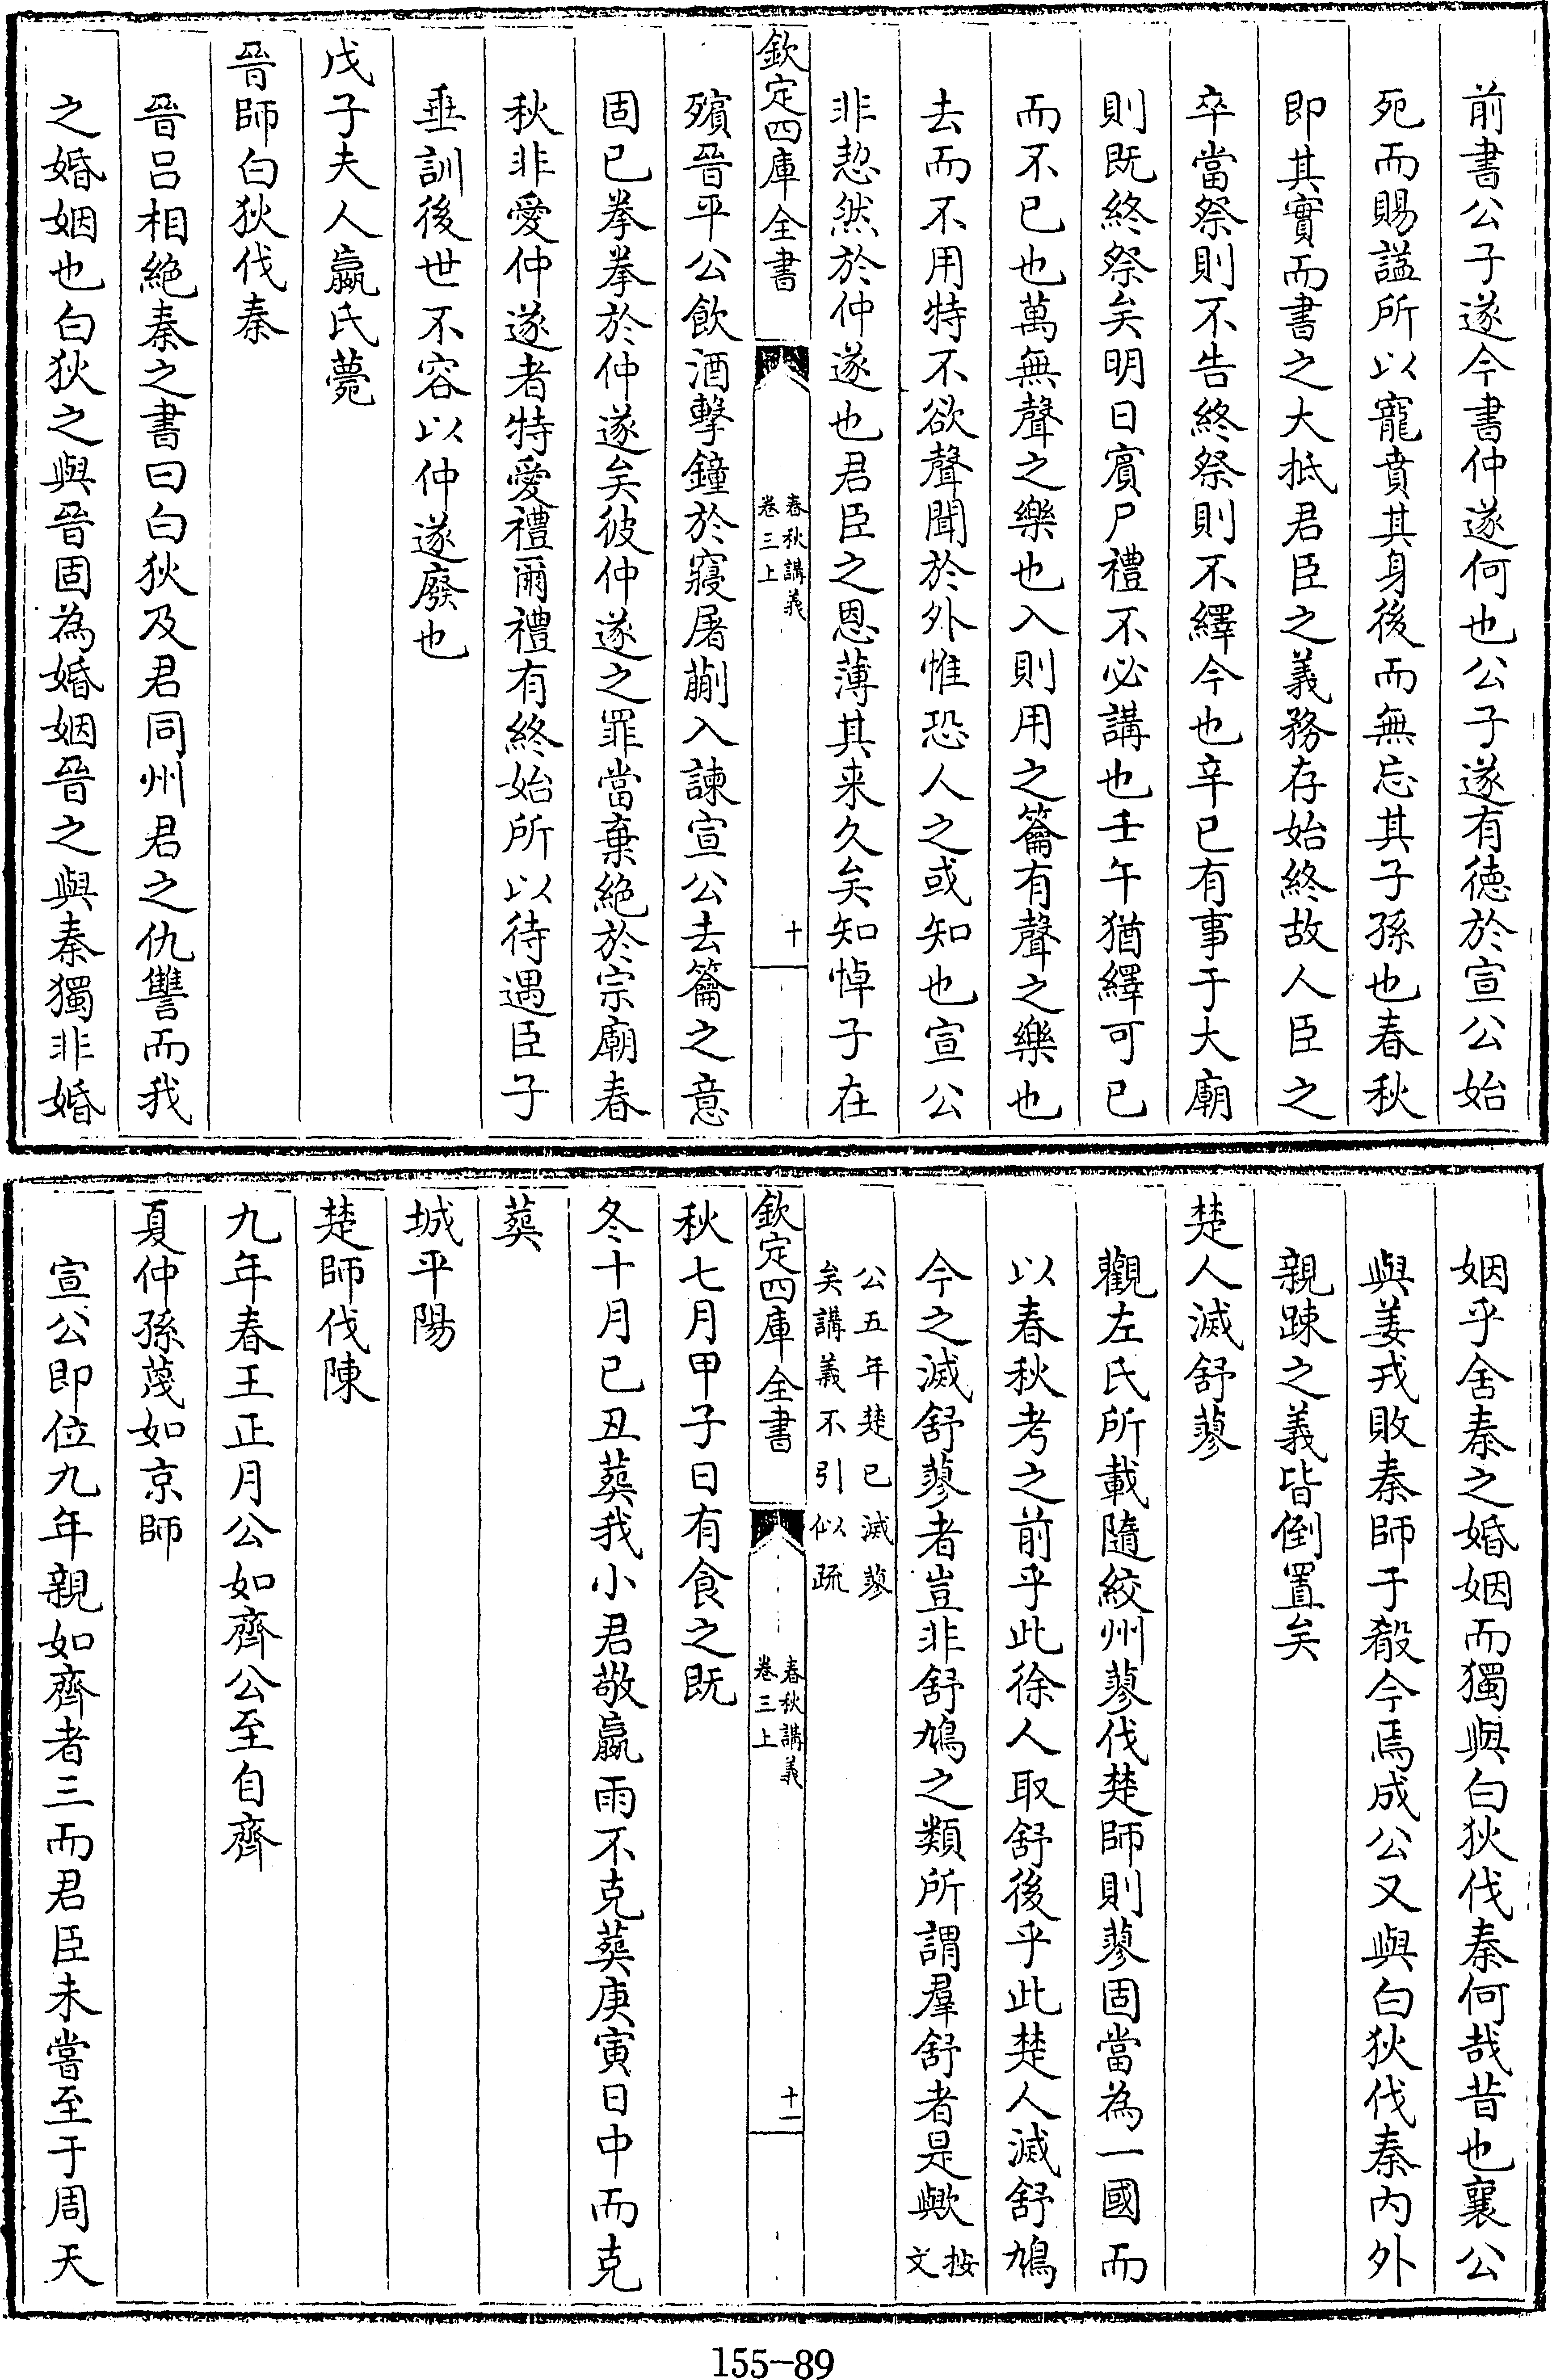 前書公子遂今書仲遂何也公子遂有徳於宣公始
死而賜諡所以寵賁其身後而無忘其子孫也春秋
即其實而書之大抵君臣之義務存始終故人臣之
卒當祭則不告終祭則不繹今也辛巳有事于大廟
則既終祭矣明日賓尸禮不必講也壬午猶繹可已
而不已也萬無聲之樂也入則用之籥有聲之樂也
去而不用特不欲聲聞於外惟恐人之或知也宣公
非恝然於仲遂也君臣之恩薄其来久矣知悼子在
欽定四庫全書
春秋講義
卷三上
十
殯晉平公飲酒擊鐘於寢屠蒯入諫宣公去籥之意
固已拳拳於仲遂矣彼仲遂之罪當棄絶於宗廟春
秋非愛仲遂者特愛禮爾禮有終始所以待遇臣子
垂訓後世不容以仲遂廢也
戊子夫人嬴氏薨
晉師白狄伐秦
晉吕相絶秦之書曰白狄及君同州君之仇讐而我
之婚姻也白狄之與晉固為婚姻晉之與秦獨非婚
姻乎舍秦之婚姻而獨與白狄伐秦何哉昔也襄公
與姜戎敗秦師于殽今焉成公又與白狄伐秦内外
親踈之義皆倒置矣
楚人滅舒蓼
觀左氏所載隨絞州蓼伐楚師則蓼固當為一國而
以春秋考之前乎此徐人取舒後乎此楚人滅舒鳩
今之滅舒蓼者豈非舒鳩之類所謂羣舒者是歟按
文
公五年楚已滅蓼
矣講義不引似疏
欽定四庫全書
春秋講義
卷三上
十一
秋七月甲子日有食之既
冬十月已丑葬我小君敬嬴雨不克葬庚寅日中而克
葬
城平陽
楚師伐陳
九年春王正月公如齊公至自齊
夏仲孫蔑如京師
宣公即位九年親如齊者三而君臣未嘗至于周天
155-89